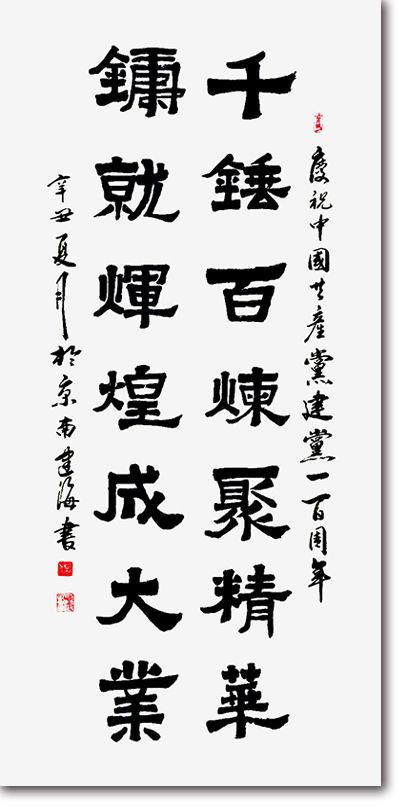 慶祝中國共產黨建黨一百周年
千錘百煉聚精華
鏞就輝煌成大業
辛丑夏月於京南建海書